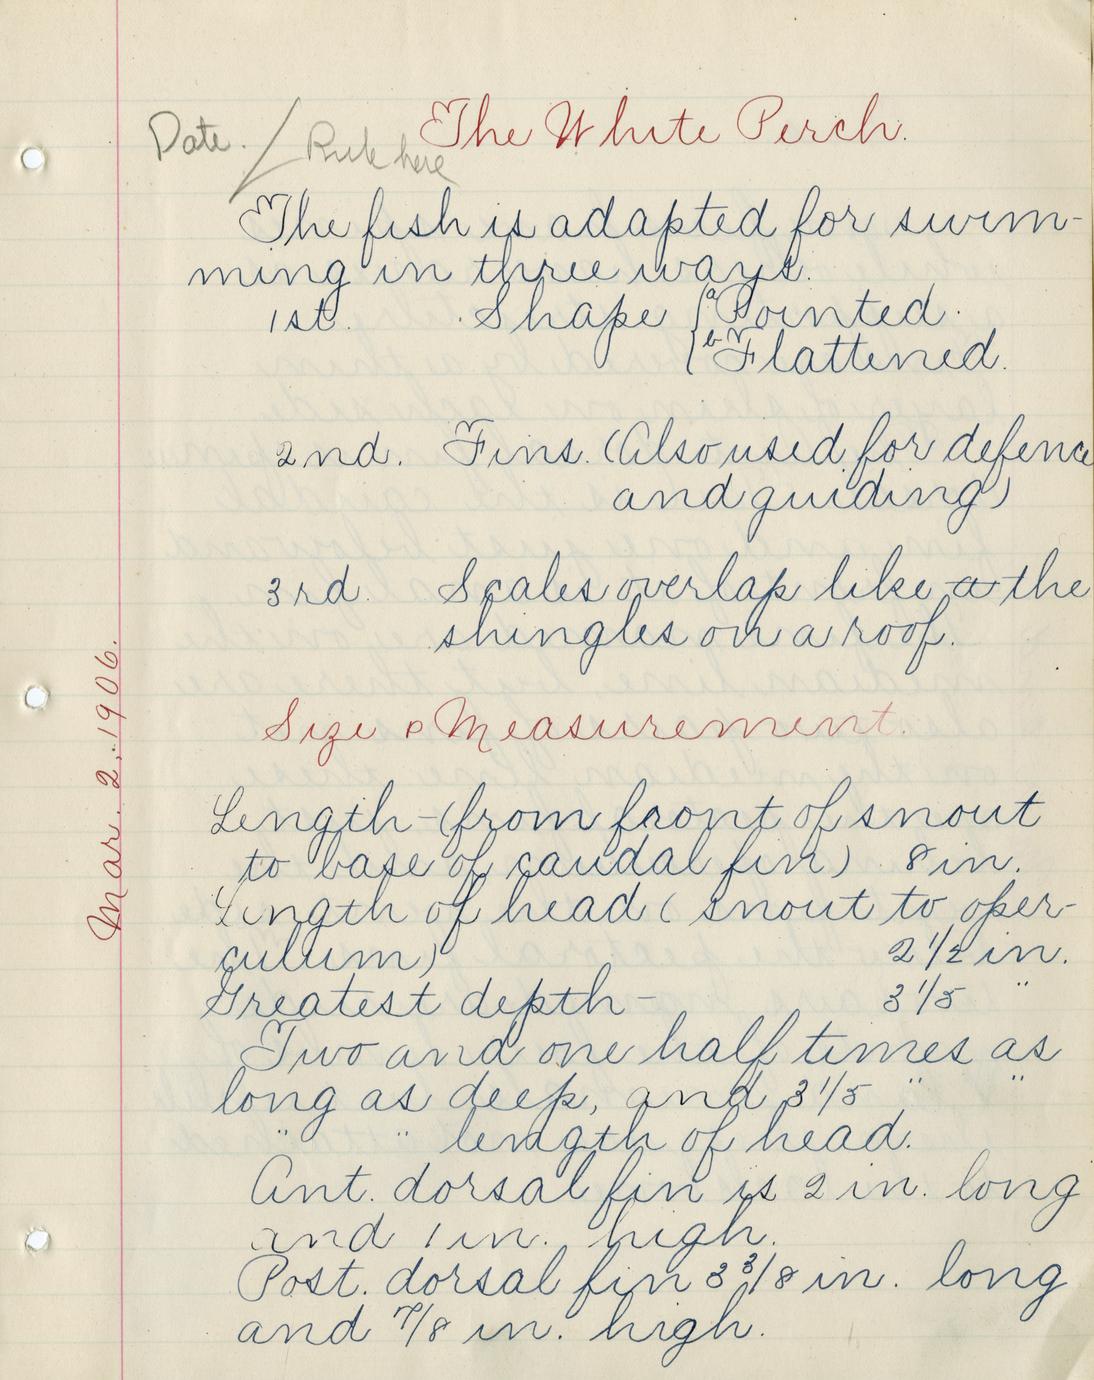 Date. / Rule here The White Perch.
The fish is adapted for swim-
ming in three ways.
1st. Shape { a Pointed.
{ b Flattened.
2nd. Fins. (Also used for defence
and guiding)
3rd. Scales overlap like a the
shingles on a roof.
Mar. 2, 1906.
Size & Measurement.
Length - (from front of snout
to base of caudal fin) 8 in.
Length of head ( snout to oper-
culum) 2 1/2 in.
Greatest depth - 3 1/5 "
Two and one half times as
long as deep, and 3 1/5 " "
" " length of head.
Ant. dorsal fin is 2 in. long
and 1 in. high.
Post. dorsal fin 3 3/8 in. long
and 7/8 in. high.